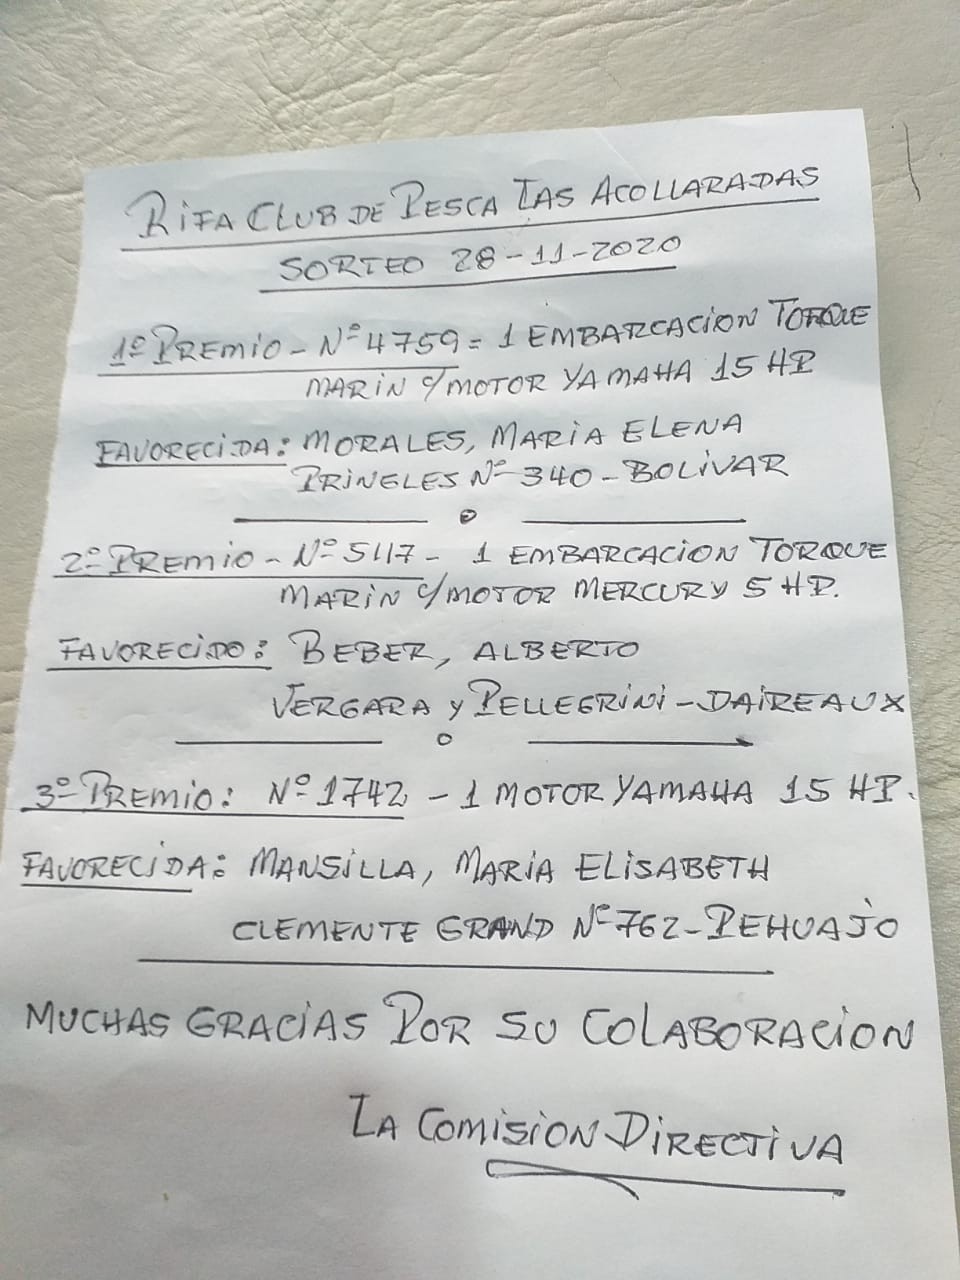 RIFA CLUB DE PESCA LAS ACOLLARADAS
SORTEO 28-11-2020
1º PREMIO - Nº 4759 = 1 EMBARCACION TORQUE
MARIN C/MOTOR YAMAHA 15 HP
FAVORECIDA: MORALES, MARIA ELENA
PRINGLES Nº 340 - BOLIVAR
2º PREMIO - Nº 5117 - 1 EMBARCACION TORQUE
MARIN C/MOTOR MERCURY 5 HP.
FAVORECIDO: BEBER, ALBERTO
VERGARA Y PELLEGRINI - DAIREAUX
3º PREMIO: Nº 1742 - 1 MOTOR YAMAHA 15 HP.
FAVORECIDA: MANSILLA, MARIA ELISABETH
CLEMENTE GRAND Nº 762 - PEHUAJO
MUCHAS GRACIAS POR SU COLABORACION
LA COMISION DIRECTIVA